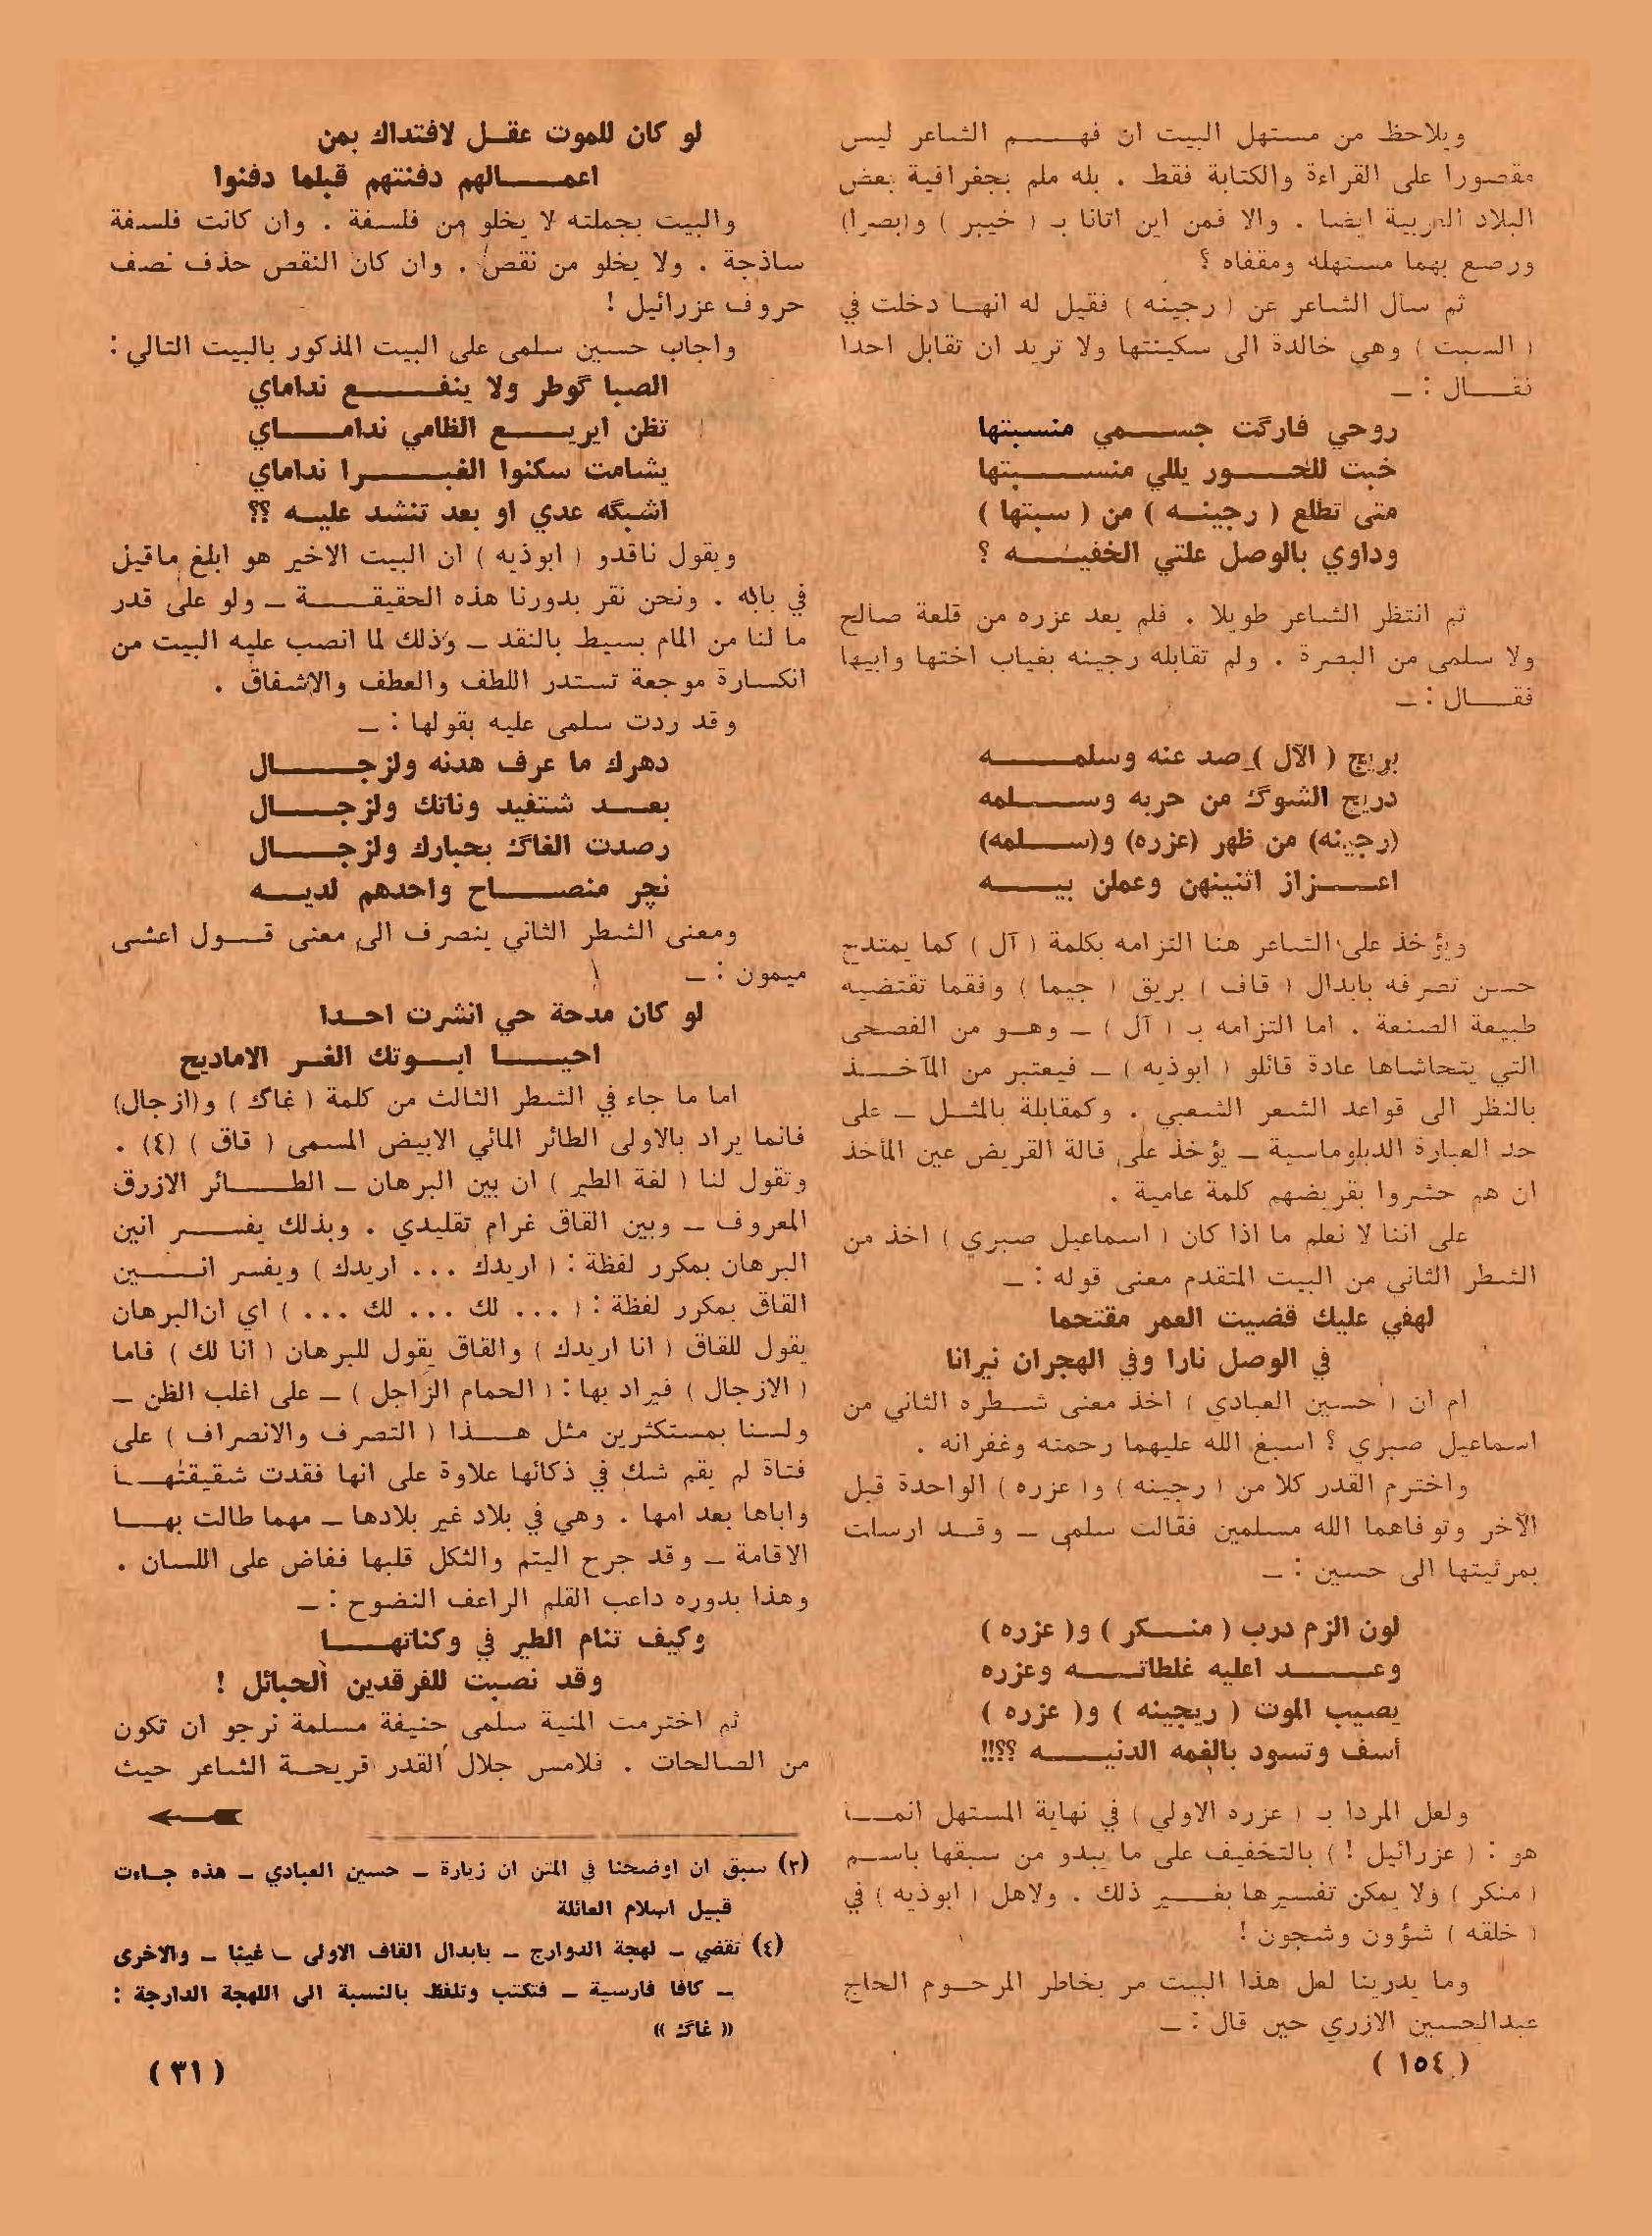 ويلاحظ من مستهل البيت ان فهم الشاعر ليس
مقصورا على القراءة والكتابة فقط . بله ملم بجغرافية بعض
البلاد العربية ايضا . والا فمن اين اتانا بـ ( خيبر ) و(بصرا)
ورصع بهما مستهله ومقفاه ؟
ثم سأل الشاعر عن ( رجينه ) فقيل له انها دخلت في
( السبت ) وهي خالدة الى سكينتها ولا تريد ان تقابل احدا
فقال : ــ
روحي فارگت جسمي منسبتها
خبت للحور يللي منسبتها
متى تطلع ( رجينه ) من ( سبتها )
وداوي بالوصل علتي الخفيه ؟
ثم انتظر الشاعر طويلا . فلم يعد عزره من قلعة صالح
ولا سلمى من البصرة . ولم تقابله رجينه بغياب اختها وابيها
فقال : ــ
بريج ( الآل ) صد عنه وسلمه
دريج الشوگ من حربه وسلمه
(رجينه) من ظهر (عزره) و(سلمه)
اعزاز اثنينهن وعملن بيه
ويؤخذ على الشاعر هنا التزامه بكلمة ( آل ) كما يمتدح
حسن تصرفه بابدال ( قاف ) بريق ( جيما ) وفقما تقتضيه
طبيعة الصنعة . اما التزامه بـ ( آل ) ــ وهو من الفصحى
التي يتحاشاها عادة قائلو ( ابوذيه ) ــ فيعتبر من المآخذ
بالنظر الى قواعد الشعر الشعبي . وكمقابلة بالمثل ــ على
حد العبارة الدبلوماسية ــ يؤخذ على قالة القريض عين المأخذ
ان هم حشروا بقريضهم كلمة عامية .
على اننا لا نعلم ما اذا كان ( اسماعيل صبري ) اخذ من
الشطر الثاني من البيت المتقدم معنى قوله : ــ
لهفي عليك قضيت العمر مقتحما
في الوصل نارا وفي الهجران نيرانا
ام ان ( حسين العبادي ) اخذ معنى شطره الثاني من
اسماعيل صبري ؟ اسبغ الله عليهما رحمته وغفرانه .
واخترم القدر كلا من ( رجينه ) و( عزره ) الواحدة قبل
الآخر وتوفاهما الله مسلمين فقالت سلمى ــ وقد ارسلت
بمرثيتها الى حسين : ــ
لون الزم درب ( منكر ) و( عزره )
وعد اعليه غلطاته وعزره
يصيب الموت ( ريجينه ) و( عزره )
أسف وتسود بالغمه الدنيه ؟؟!!
ولعل المردا بـ ( عزره الاولي ) في نهاية المستهل انما
هو : ( عزرائيل ! ) بالتخفيف على ما يبدو من سبقها باسم
( منكر ) ولا يمكن تفسيرها بغير ذلك . ولاهل ( ابوذيه ) في
( خلقه ) شؤون وشجون !
وما يدرينا لعل هذا البيت مر بخاطر المرحوم الحاج
عبدالحسين الازري حين قال : ــ
( ١٥٤ )
لو كان للموت عقل لافتداك بمن
اعمالهم دفنتهم قبلما دفنوا
والبيت بجملته لا يخلو من فلسفة . وان كانت فلسفة
ساذجة . ولا يخلو من نقص . وان كان النقص حذف نصف
حروف عزرائيل !
واجاب حسين سلمى على البيت المذكور بالبيت التالي :
الصبا گوطر ولا ينفع نداماي
تظن ايريع الظامي نداماي
يشامت سكنوا الغبرا نداماي
اشبگه عدي او بعد تنشد عليه ؟؟
ويقول ناقدو ( ابوذيه ) ان البيت الاخير هو ابلغ ماقيل
في بابه . ونحن نقر بدورنا هذه الحقيقة ــ ولو على قدر
ما لنا من المام بسيط بالنقد ــ وذلك لما انصب عليه البيت من
انكسارة موجعة تستدر اللطف والعطف والاشفاق .
وقد ردت سلمى عليه بقولها : ــ
دهرك ما عرف هدنه ولزجال
بعد شتفيد وناتك ولزجال
رصدت الغاگ بحبارك ولزجال
نچر منصاح واحدهم لديه
ومعنى الشطر الثاني ينصرف الى معنى قول اعشى
ميمون : ــ
لو كان مدحة حي انشرت احدا
احيا ابوتك الغر الاماديح
اما ما جاء في الشطر الثالث من كلمة ( غاگ ) و(ازجال)
فانما يراد بالاولى الطائر المائي الابيض المسمى ( قاق ) (٤) .
وتقول لنا ( لغة الطير ) ان بين البرهان ــ الطائر الازرق
المعروف ــ وبين القاق غرام تقليدي . وبذلك يفسر انين
البرهان بمكرر لفظة : ( اريدك ... اريدك ) ويفسر انين
القاق بمكرر لفظة : ( ... لك ... لك ... ) اي ان البرهان
يقول للقاق ( انا اريدك ) والقاق يقول للبرهان ( انا لك ) فاما
( الازجال ) فيراد بها : ( الحمام الزاجل ) ــ على اغلب الظن ــ
ولسنا بمستكثرين مثل هذا ( التصرف والانصراف ) على
فتاة لم يقم شك في ذكائها علاوة على انها فقدت شقيقتها
واباها بعد امها . وهي في بلاد غير بلادها ــ مهما طالت بها
الاقامة ــ وقد جرح اليتم والثكل قلبها ففاض على اللسان .
وهذا بدوره داعب القلم الراعف النضوح : ــ
وكيف تنام الطير في وكناتها
وقد نصبت للفرقدين الحبائل !
ثم اخترمت المنية سلمى حنيفة مسلمة نرجو ان تكون
من الصالحات . فلامس جلال القدر قريحة الشاعر حيث
(٣) سبق ان اوضحنا في المتن ان زيارة ــ حسين العبادي ــ هذه جاءت
قبيل اسلام العائلة
(٤) تقضي ــ لهجة الدوارج ــ بابدال القاف الاولى ــ غينا ــ والاخرى
ــ كافا فارسية ــ فتكتب وتلفظ بالنسبة الى اللهجة الدارجة :
« غاگ »
( ٣١ )